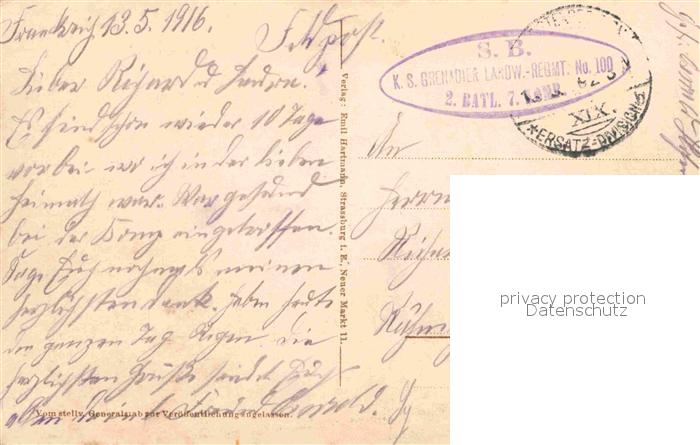 Frankreich 13.5.1916. Feldpost.
Lieber Richard u
Es sind schon wieder 10 Tage
vorbei wo ich in der lieben
Heimath war. War gesund
bei der Komp eingetroffen.
Sage Euch nochmals meinen
herzlichsten Dank. Haben heute
den ganzen Tag Regen. Die
herzlichsten Grüße sendet Euch
S. B.
K. S. GRENADIER LANDW.-REGMT. No. 100
2. BATL. 7. KOMP.
XIX.
*ERSATZ-DIVISION
Verlag: Emil Hartmann, Strassburg i. E., Neuer Markt 11.
An
Herrn
Vom stellv. Generalstab zur Veröffentlichung zugelassen.
privacy protection
Datenschutz